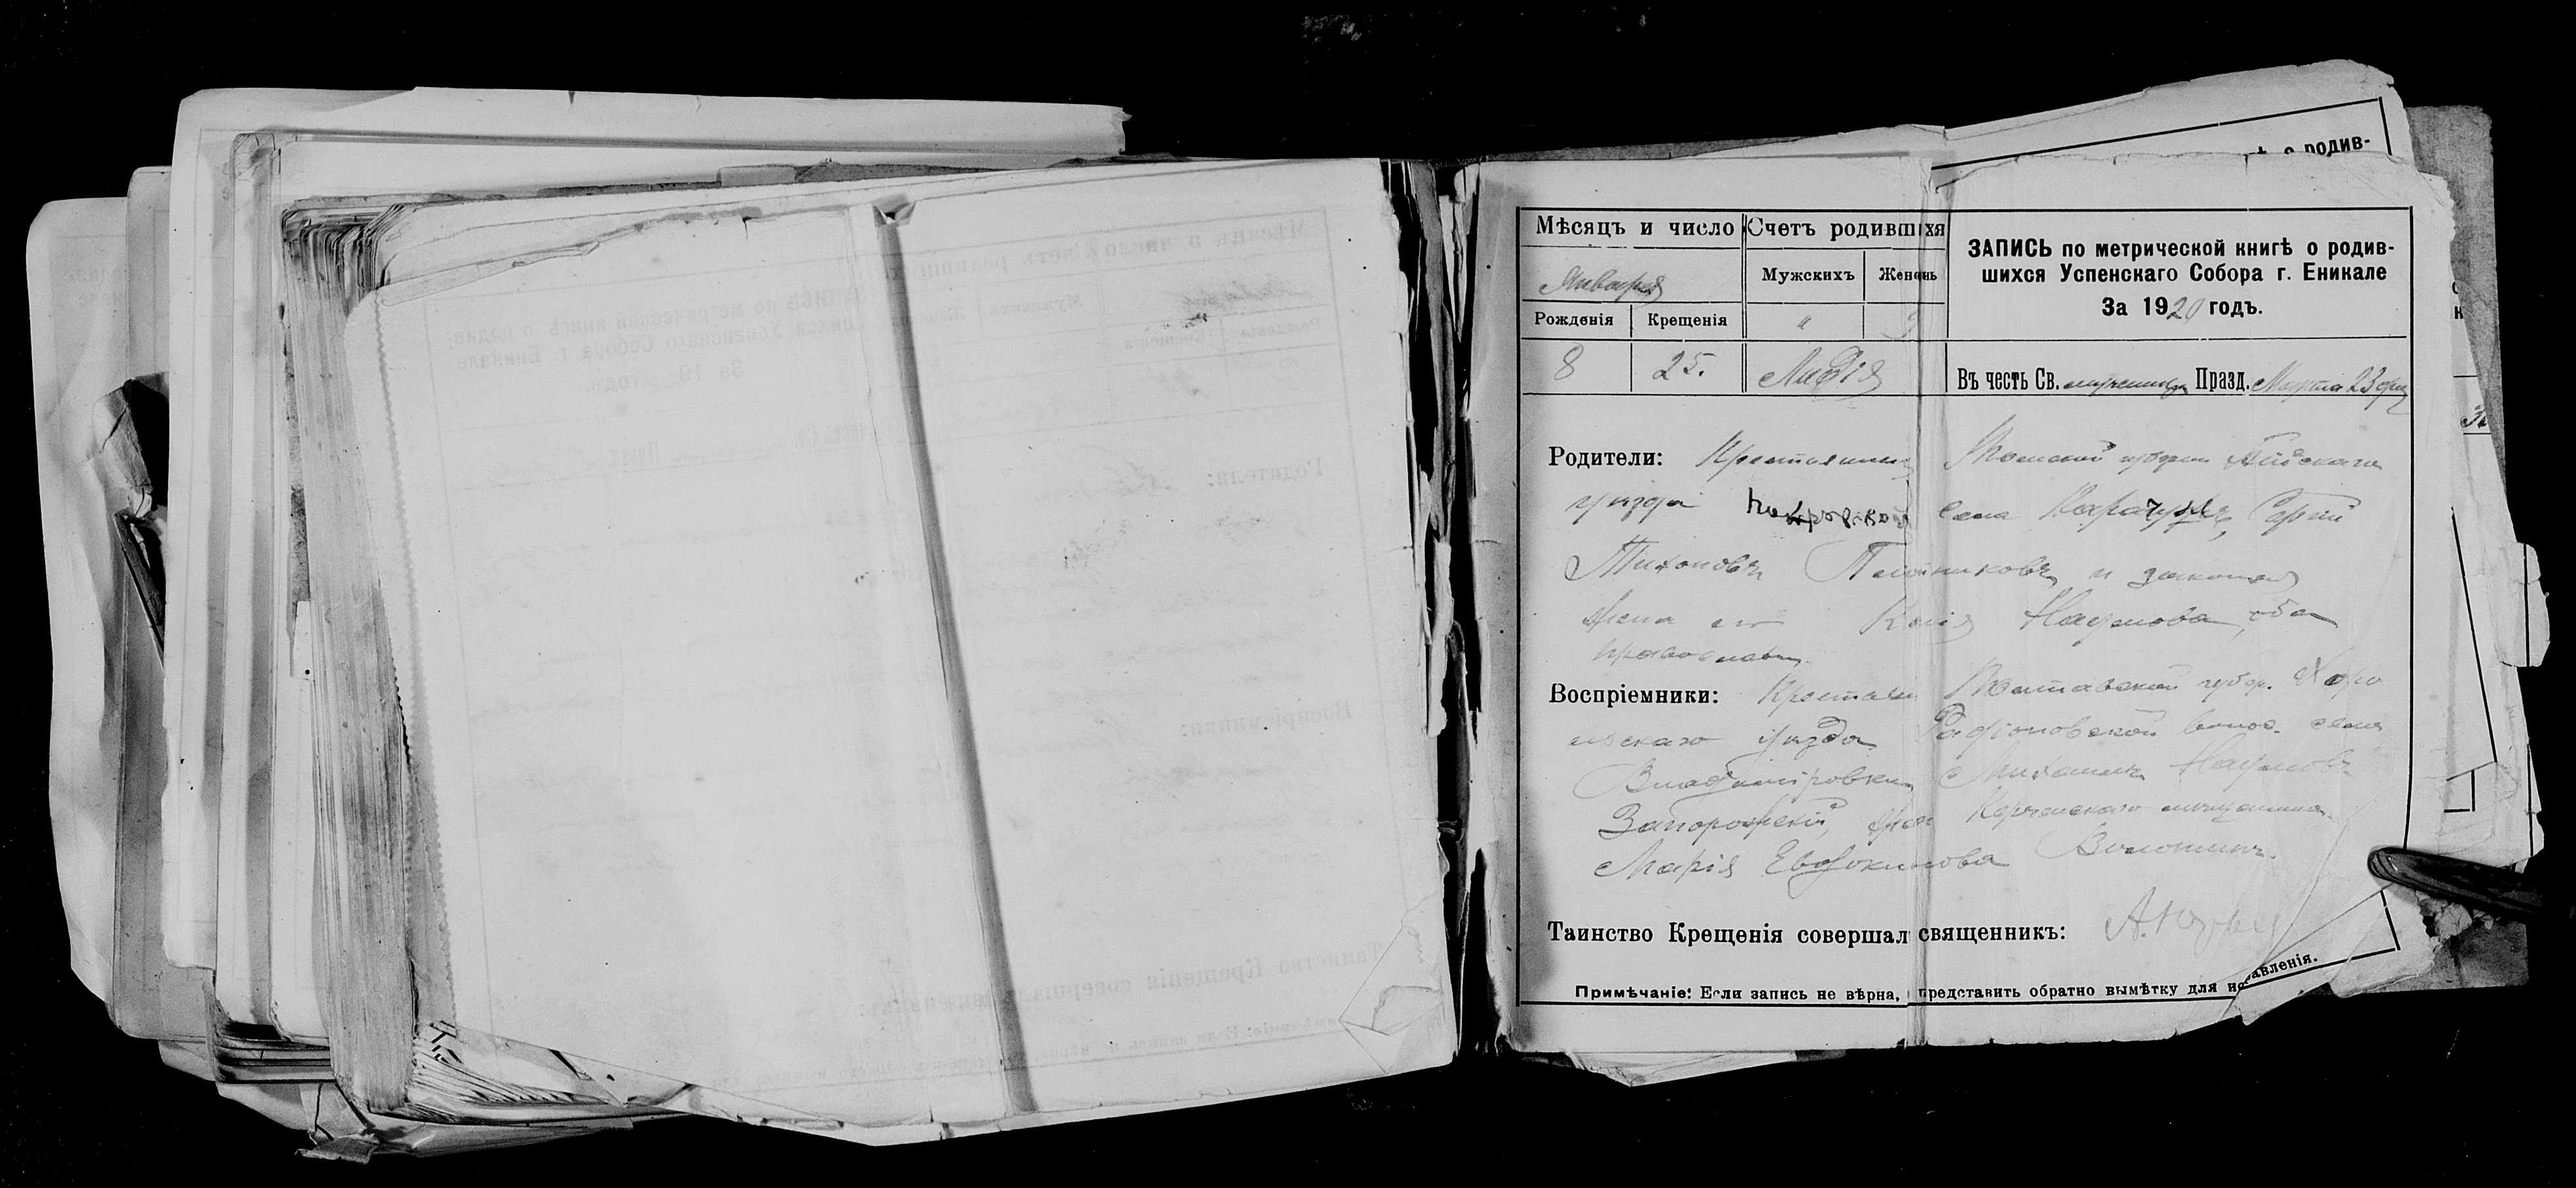 ѣ о родив-
Мѣсяцъ и число
Счетъ родившихся
ЗАПИСЬ по метрической книгѣ о родив-
шихся Успенскаго Собора г. Еникале
За 1920 годъ.
Января
Мужскихъ
Женскихъ
Рожденія
Крещенія
"
8
25.
Лидія
Въ честь Св. мученицы Празд. Марта 23 дня
Родители: Крестьянинъ Томской губерн Бійскаго
уѣзда Покровской села Сергій
Тихоновъ и законная
жена его Наумова, оба
православн.
Воспріемники: Крестьян Полтавской губер. Хоро
льскаго уѣзда Родіоновской волос. села
Владиміровки Михаилъ Наумовъ
Запорожскій, жена Керченскаго мѣщанина
Марія Евдокимова Волошинъ.
Таинство Крещенія совершал священникъ:
Примѣчаніе: Если запись не вѣрна, представить обратно вымѣтку для исправленія.